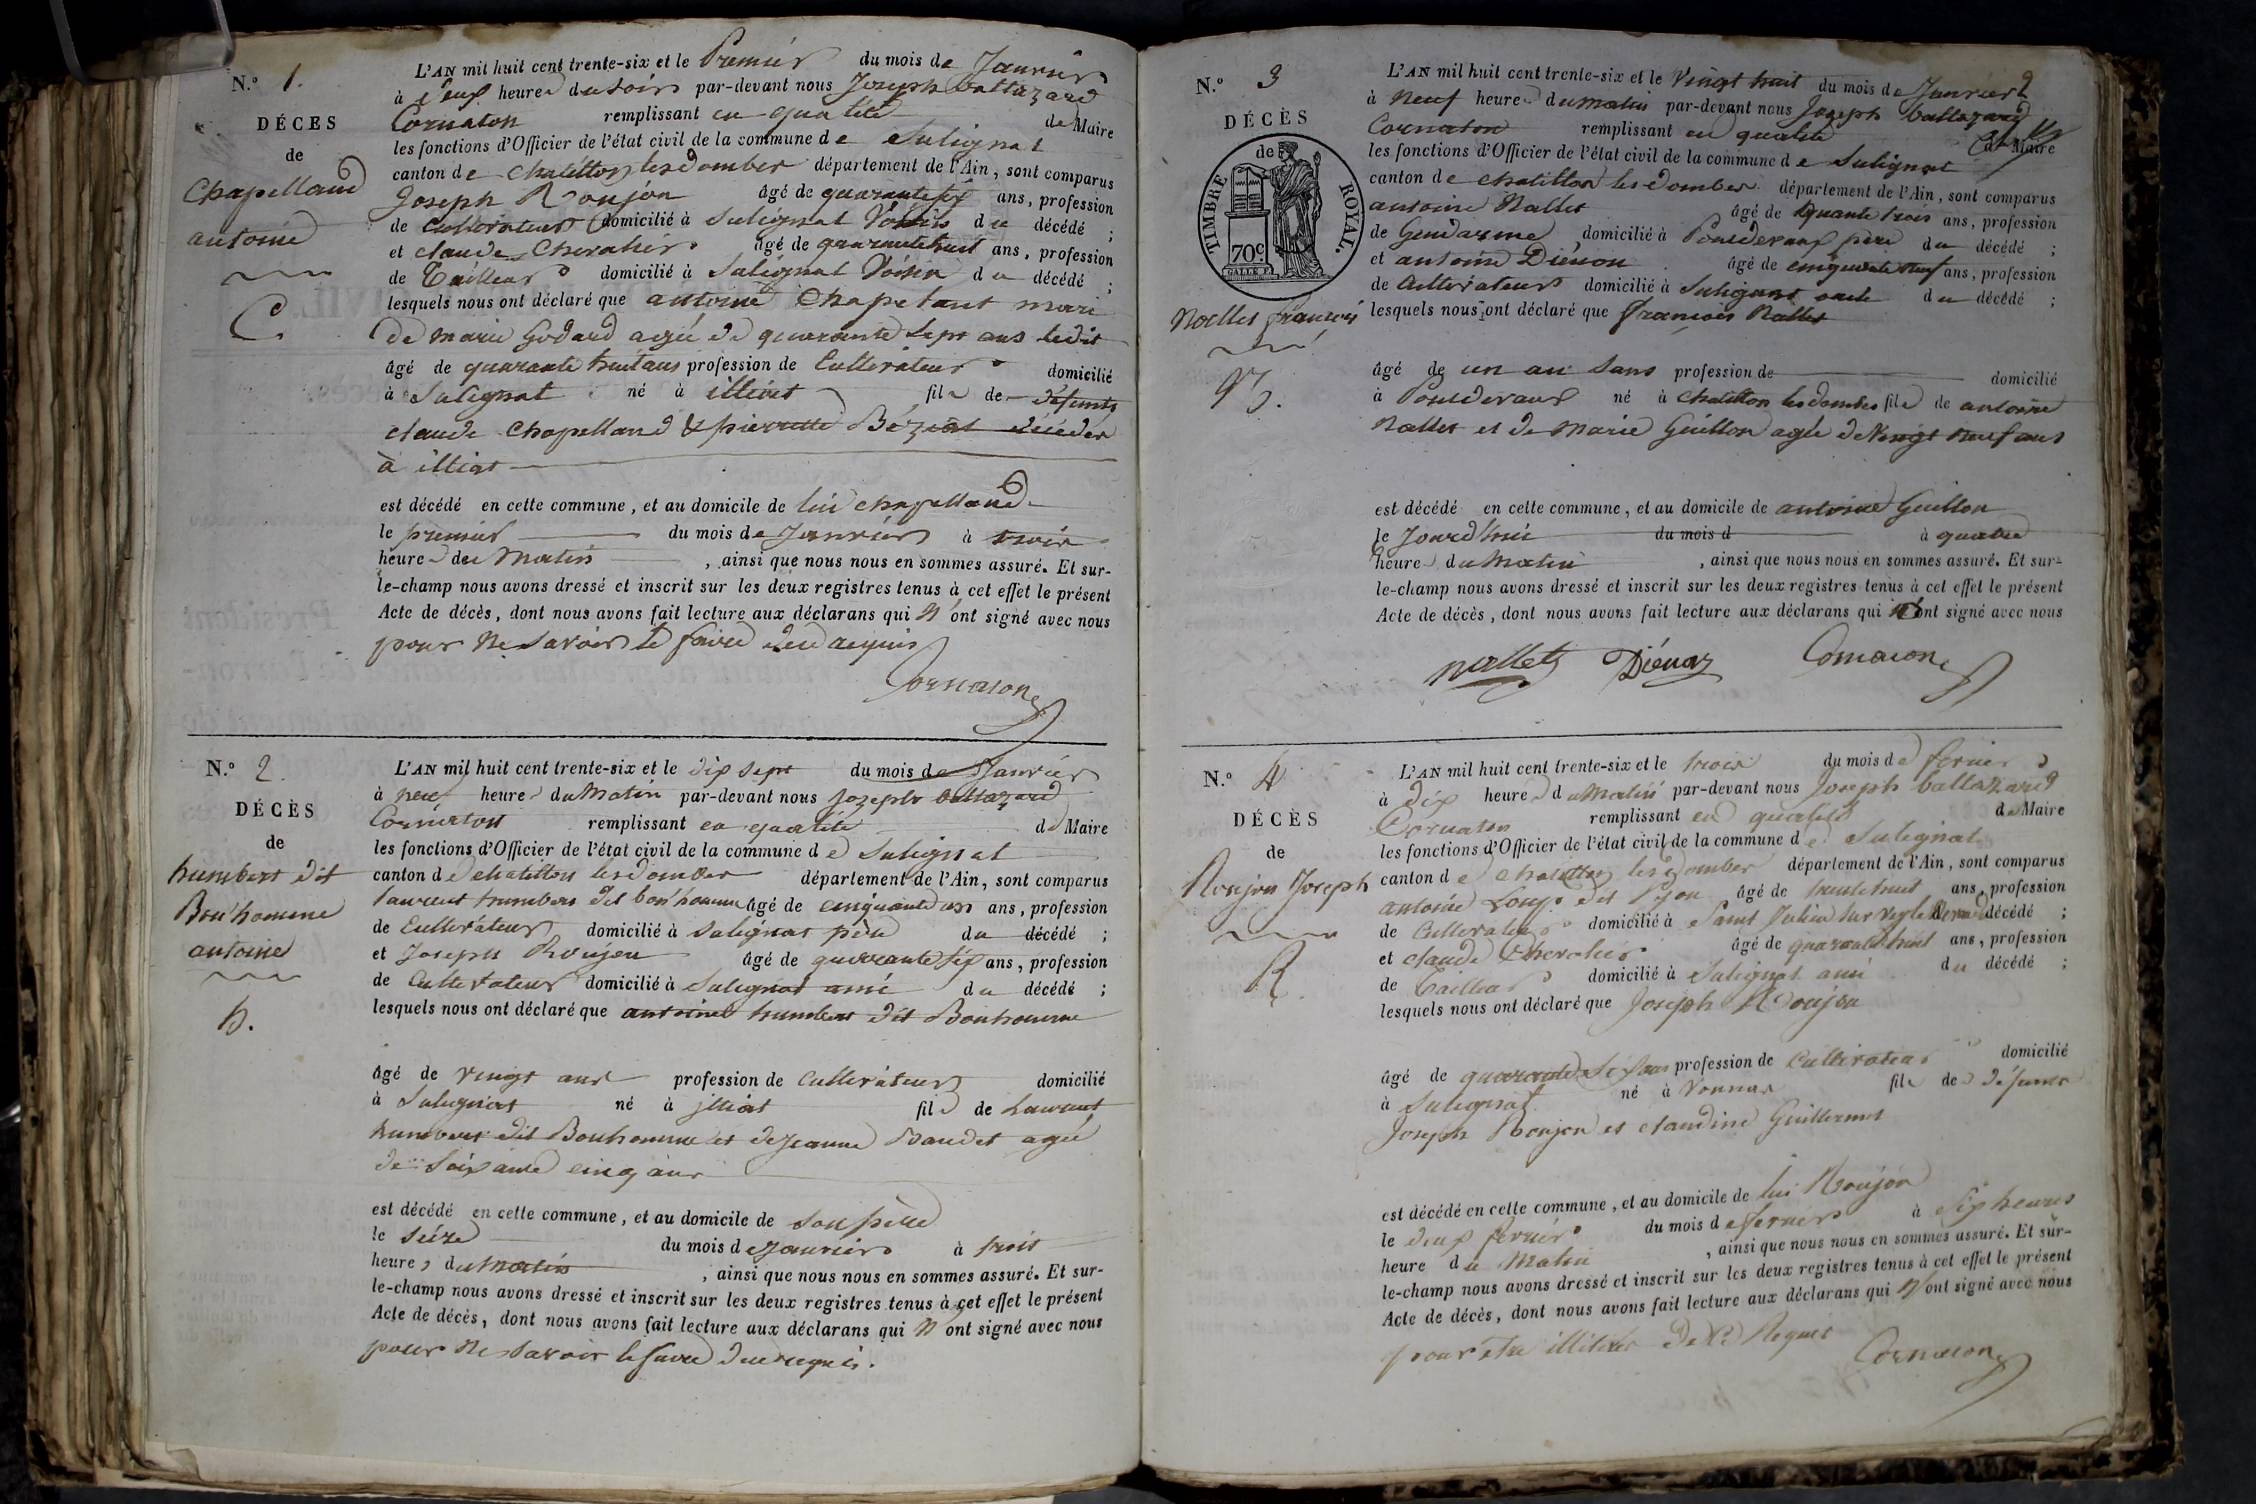 N.º 1.
DÉCES
de
Chapelland
antoine
C.
L'AN mil huit cent trente-six et le Premier du mois de Janvier
à deux heures du soir par-devant nous Joseph baltazard
Cornaton remplissant en qualité de Maire
les fonctions d'Officier de l'état civil de la commune de Sulignat
canton de Chatillon les dombes département de l'Ain, sont comparus
Joseph Roujon âgé de quarante six ans, profession
de cultivateur domicilié à Sulignat Voisin du décédé ;
et claude Chevalier âgé de quarante huit ans, profession
de Tailleur domicilié à Sulignat Voisin du décédé ;
lesquels nous ont déclaré que antoine Chapeland mari
de marie Godard agée de quarante sept ans ledit
âgé de quarante huit ans profession de Cultivateur domicilié
à Sulignat né à illiat fils de défunts
claude Chapelland & pierrette décédés
à illiat
est décédé en cette commune, et au domicile de lui chapelland
le premier du mois de Janvier à trois
heures du Matin , ainsi que nous nous en sommes assuré. Et sur-
le-champ nous avons dressé et inscrit sur les deux registres tenus à cet effet le présent
Acte de décès, dont nous avons fait lecture aux déclarans qui n'ont signé avec nous
pour ne savoir le faire de ce requis
Cornaton
N.º 2.
DÉCÈS
de
humbert dit
Bon'homme
antoine
h.
L'AN mil huit cent trente-six et le dix sept du mois de Janvier
à neuf heures du Matin par-devant nous Joseph baltazard
Cornaton remplissant en qualité de Maire
les fonctions d'Officier de l'état civil de la commune de Sulignat
canton de chatillon les dombes département de l'Ain, sont comparus
laurent humbert dit bon'homme âgé de cinquante ans, profession
de Cultivateur domicilié à Sulignat père du décédé ;
et Joseph Roujon âgé de quarante six ans, profession
de Cultivateur domicilié à Sulignat ami du décédé ;
lesquels nous ont déclaré que antoine humbert dit Bonhomme
âgé de vingt ans profession de cultivateur domicilié
à Suligniat né à illiat fils de Laurent
humbert dit Bonhomme et de Jeanne Baudet agée
de soixante cinq ans
est décédé en cette commune, et au domicile de son père
le seize du mois de Janvier à trois
heures du Matin , ainsi que nous nous en sommes assuré. Et sur-
le-champ nous avons dressé et inscrit sur les deux registres tenus à cet effet le présent
Acte de décès, dont nous avons fait lecture aux déclarans qui n'ont signé avec nous
pour ne savoir le faire de ce requis.
N.º 3
DÉCÈS
de
TIMBRE ROYAL.
70c
Nallet françois
N.
2
L'AN mil huit cent trente-six et le Vingt huit du mois de Janvier
à Neuf heures du matin par-devant nous Joseph baltazard
Cornaton remplissant en qualité de Maire
les fonctions d'Officier de l'état civil de la commune de Sulignat
canton de chatillon les dombes département de l'Ain, sont comparus
antoine Nallet âgé de trois ans, profession
de Gendarme domicilié à père du décédé ;
et antoine Diénon âgé de cinquante neuf ans, profession
de Cultivateur domicilié à Sulignat oncle du décédé ;
lesquels nous ont déclaré que françois Nallet
âgé de un an Sans profession de domicilié
à né à Chatillon les dombes fils de antoine
Nallet et de Marie Guillon agée de Vingt neuf ans
est décédé en cette commune, et au domicile de antoine Guillon
le Jourd'hui du mois d à quatre
heures du Matin , ainsi que nous nous en sommes assuré. Et sur-
le-champ nous avons dressé et inscrit sur les deux registres tenus à cet effet le présent
Acte de décès, dont nous avons fait lecture aux déclarans qui ont signé avec nous
Nallet Diénon Cornaton
N.º 4
DÉCÈS
de
Roujon Joseph
R.
L'AN mil huit cent trente-six et le trois du mois de fevrier
à dix heures du Matin par-devant nous Joseph baltazard
Cornaton remplissant en qualité de Maire
les fonctions d'Officier de l'état civil de la commune de Suligniat
canton de Chatillon les Dombes département de l'Ain, sont comparus
antoine Loup dit âgé de trente huit ans, profession
de Cultivateur domicilié à Saint Julien sur Veyle décédé ;
et claude Chevalier âgé de quarante huit ans, profession
de Tailleur domicilié à Suligniat ami du décédé ;
lesquels nous ont déclaré que Joseph Roujon
âgé de quarante six ans profession de Cultivateur domicilié
à Suligniat né à Vonnas fils de défunts
Joseph Roujon et claudine Guillermet
est décédé en cette commune, et au domicile de lui Roujon
le deux fevrier du mois de fevrier à six heures
heure du Matin , ainsi que nous nous en sommes assuré. Et sur-
le-champ nous avons dressé et inscrit sur les deux registres tenus à cet effet le présent
Acte de décès, dont nous avons fait lecture aux déclarans qui n'ont signé avec nous
pour être illitérés De Ce Requis
Cornaton